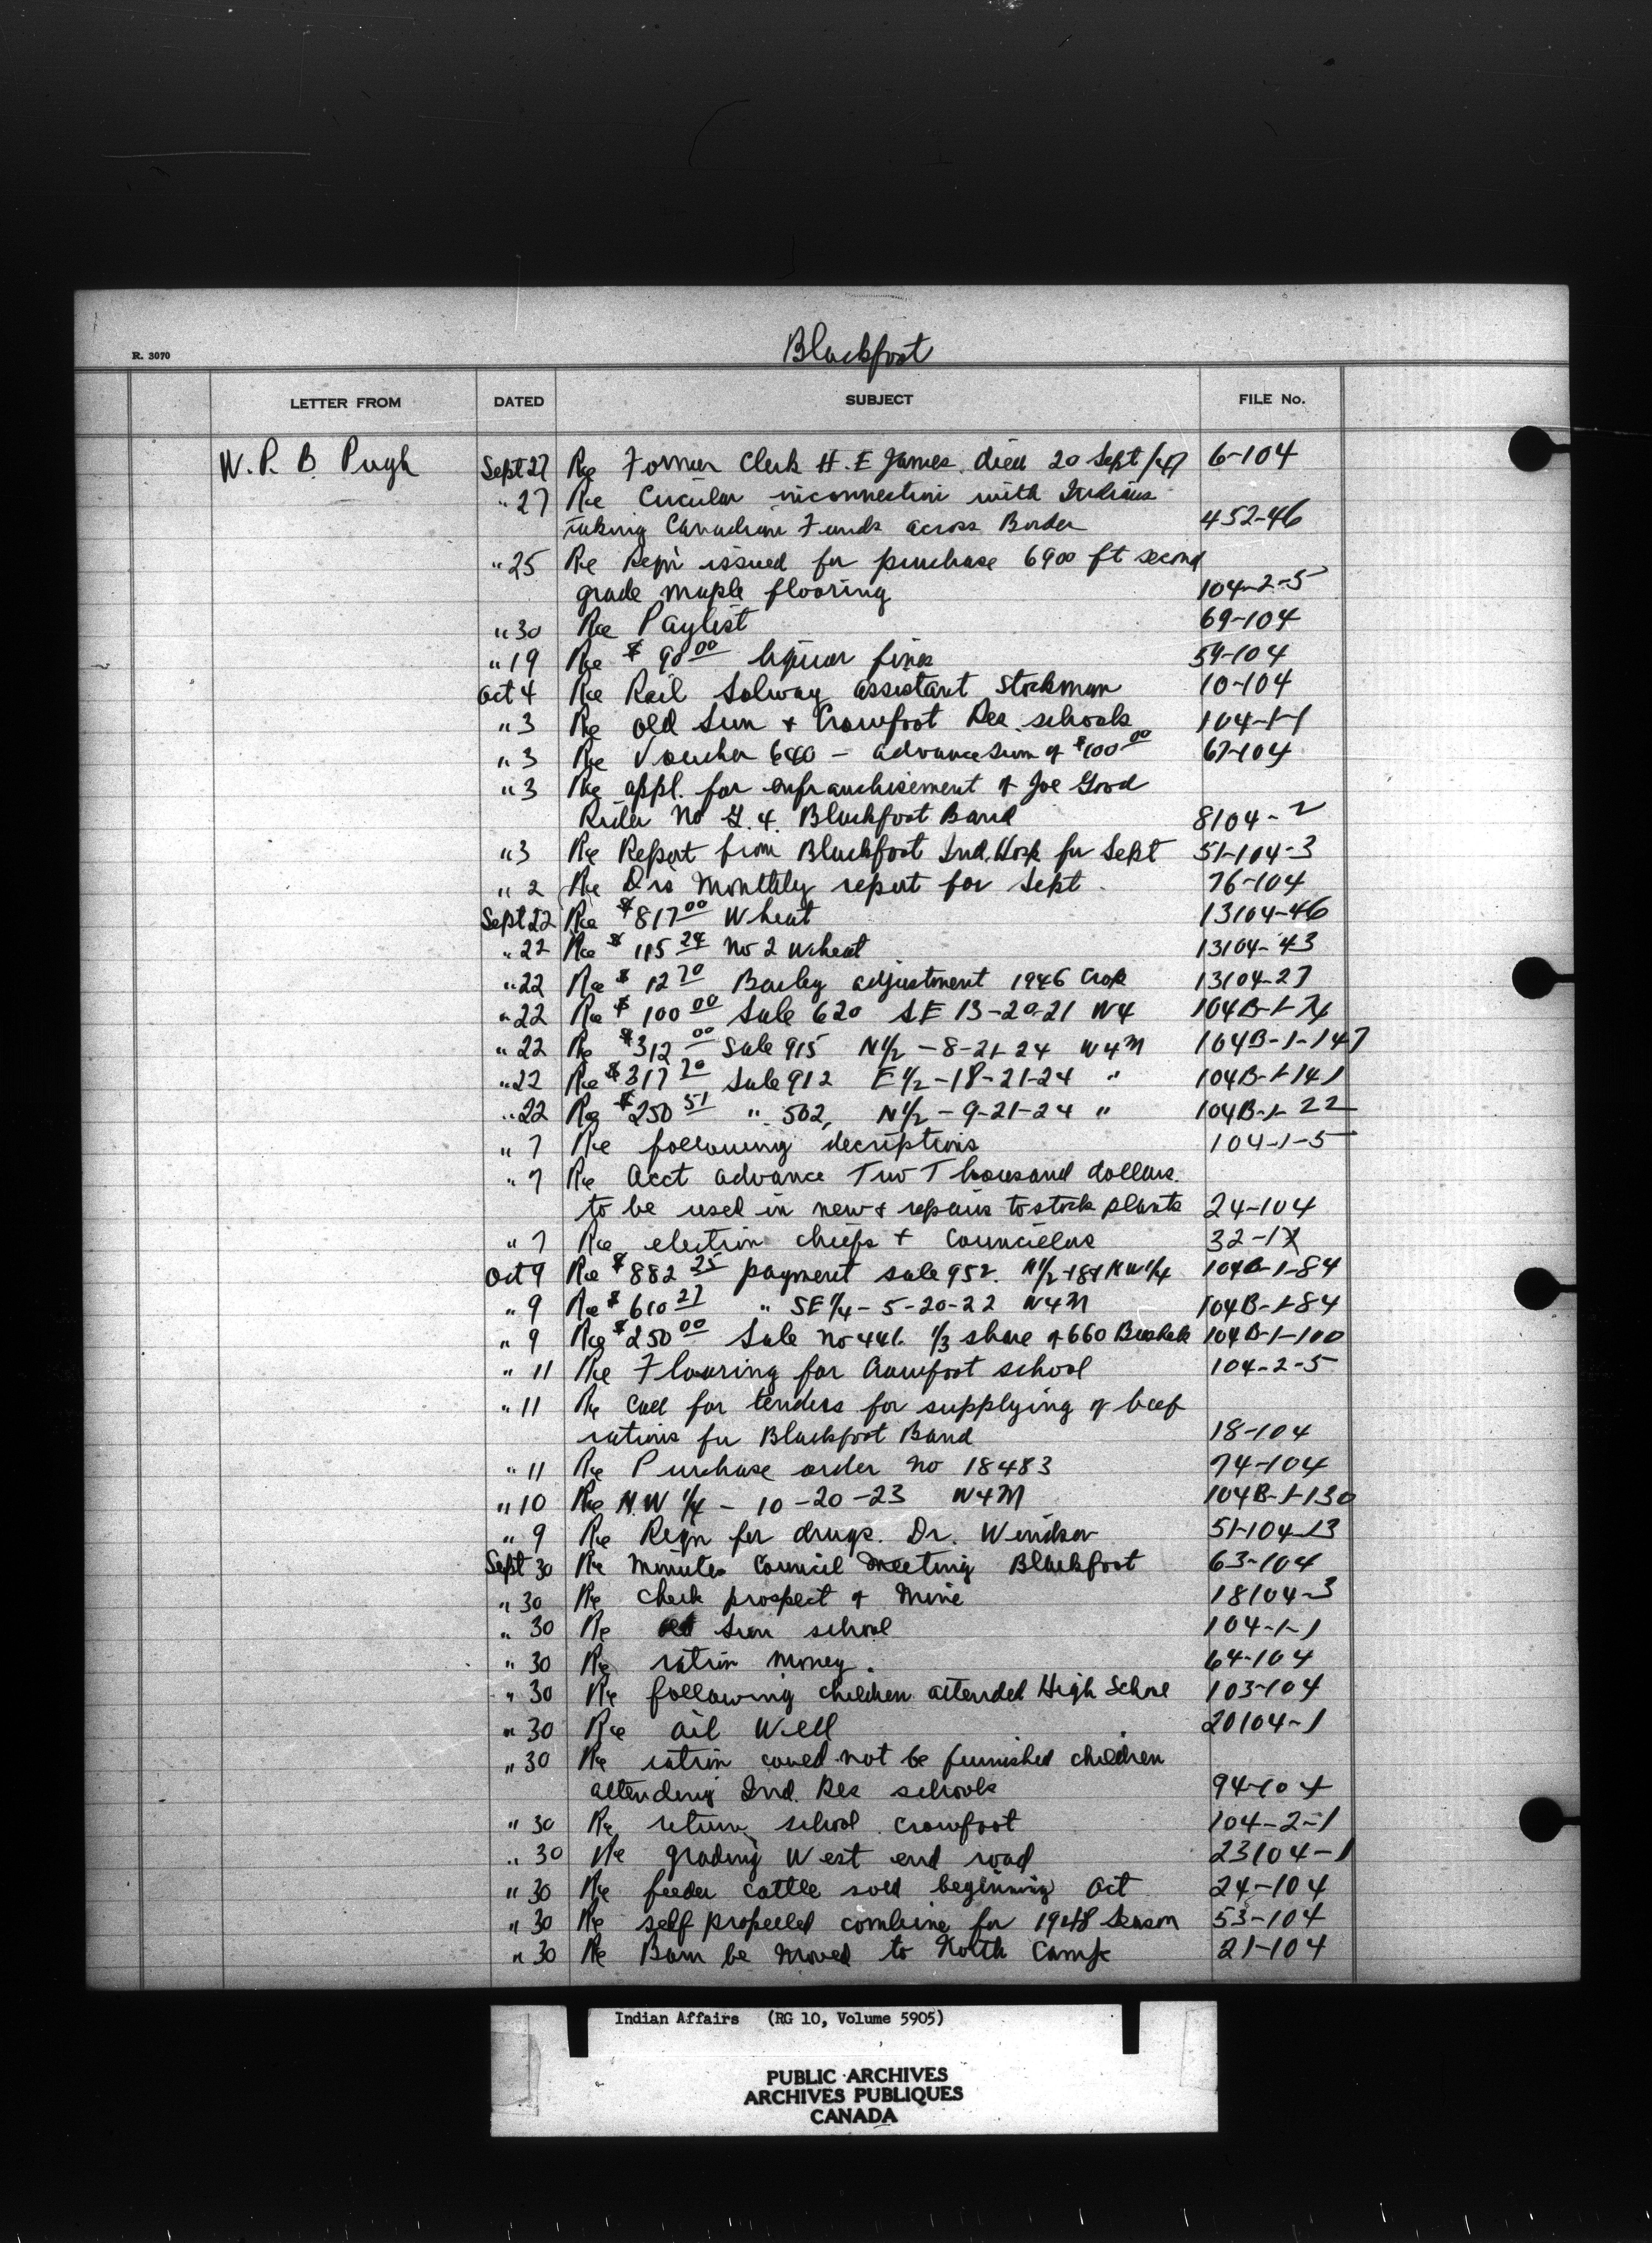 Blackfoot
R. 3070
LETTER FROM DATED SUBJECT FILE No.
W. P. B. Pugh Sept 27 Re Former Clerk H. E James died 20 Sept/47 6-104
" 27 Re Circular inconnection with Indians
taking Canadian Funds across Border 452-46
" 25 Re Reqn issued for purchase 6900 ft second
grade maple flooring 104-2-5
" 30 Re Paylist 69-104
" 19 Re $ 90 00 liquor fines 59-104
Oct 4 Re Rail Solway assistant Stockman 10-104
" 3 Re old Sun + Crowfoot Res. schools 104-1-1
" 3 Re Voucher 640 - advance sum of $100 00 67-104
" 3 Re appl. for enfranchisement of Joe Good
Rider No G. 4. Blackfoot Band 8104-2
" 3 Re Report from Blackfoot Ind. Hosp for Sept 51-104-3
" 2 Re Drs Monthly report for Sept. 76-104
Sept 22 Re $817 00 Wheat 13104-46
" 22 Re $ 115 24 No 2 Wheat 13104-43
" 22 Re $ 12 70 Barley adjustment 1946 Crop 13104-27
" 22 Re $ 100 00 Sale 620 SE 13-20-21 W4 104B-1-74
" 22 Re $312 00 Sale 915 N1/2 - 8-21-24 W4M 104B-1-147
" 22 Re $317 20 Sale 912 E1/2 - 18-21-24 " 104B-1-141
" 22 Re $250 51 " 502, N1/2 - 9-21-24 " 104B-1-22
" 7 Re following decriptions 104-1-5
" 7 Re Acct advance Two Thousand dollars.
to be used in new & repairs to stock plants 24-104
" 7 Re election chiefs + Councillors 32-1
Oct 9 Re $882 25 payment sale 952. N1/2 + 8 + NW1/4 104B-1-84
" 9 Re $ 610 27 " SE 1/4 - 5-20-22 W4M 104B-1-84
" 9 Re $250 00 Sale No 441. 1/3 share of 660 Bushels 104B-1-100
" 11 Re Flooring for Crowfoot school 104-2-5
" 11 Re Call for tenders for supplying of beef
rations for Blackfoot Band 18-104
" 11 Re Purchase order No 18483 74-104
" 10 Re N.W 1/4 - 10-20-23 W4M 104B-1-130
" 9 Re Reqn for drugs. Dr. Windsor 51-104-13
Sept 30 Re Minutes Council Meeting Blackfoot 63-104
" 30 Re check prospect of Mine 18104-3
" 30 Re old Sun school 104-1-1
" 30 Re ration money. 64-104
" 30 Re following children attended High Schol 103-104
" 30 Re oil Well 20104-1
" 30 Re ration could not be furnished children
attending Ind. Res schools 94-104
" 30 Re return school Crowfoot 104-2-1
" 30 Re grading West end road 23104-1
" 30 Re feeder cattle sold beginning Oct 24-104
" 30 Re self propelled combine for 1948 Season 53-104
" 30 Re Barn be moved to North Camp 21-104
Indian Affairs (RG 10, Volume 5905)
PUBLIC ARCHIVES
ARCHIVES PUBLIQUES
CANADA